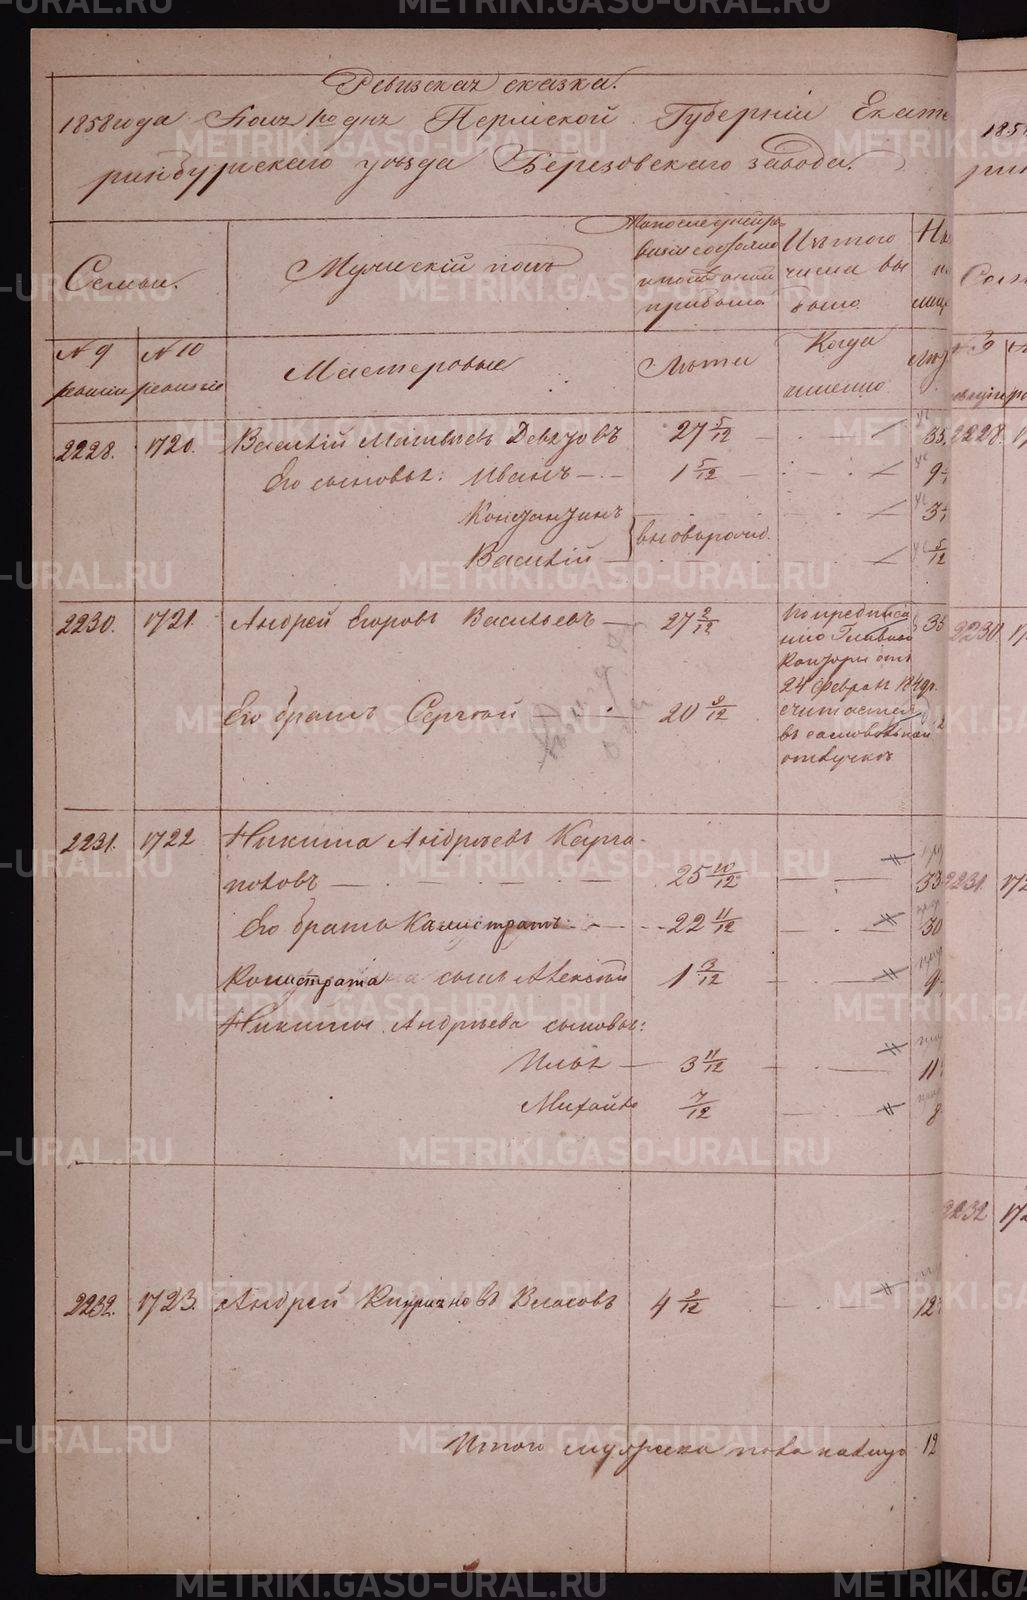 Ревизская сказка.
1858 года Пермской Губернiи Екате
ринбургскаго уѣзда Березовскаго завода.
Семьи.
Мужескiй полъ
По последней ре
визiи состояло
и после оной
прибыло
Изъ того
числа вы
было.
N 9 ревизiи
N 10 ревизiи
Мастеровые
Лѣта
Когда
именно
2228. 1720. Василiй Матвѣевъ Девятовъ 27 5/12 35
Его сыновья: Иванъ 1 5/12 9
Констянтинъ 3
Василiй вноворожд. 5/12
2230. 1721. Андрей Егоровъ Васильевъ 27 2/12 35
по предписа
нiю Главной
Конторы отъ
24 февраля
считается
въ самовольной
отлучкѣ
Его братъ Сергѣй 20 9/12
2231. 1722 Никита Андрѣевъ Карга
половъ 25 10/12 33
Его братъ Калистратъ 22 11/12 30
Калистрата сынъ Алексѣй 1 3/12 9
Никиты Андрѣева сыновья:
Илья 3 11/12 11
Михайло 7/12 8
2232. 1723. Андрей Кипрiяновъ Власовъ 4 9/12 12
Итого мужеска пола налицо 12
METRIKI.GASO-URAL.RU